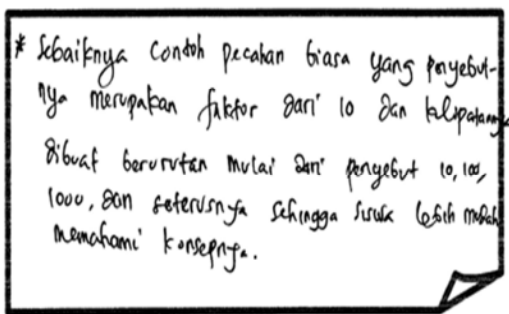 * Sebaiknya contoh pecahan biasa yang penyebut-
nya merupakan faktor dari 10 dan kelipatannya
dibuat berurutan mulai dari penyebut 10, 100,
1000, dan seterusnya sehingga siswa lebih mudah
memahami konsepnya.